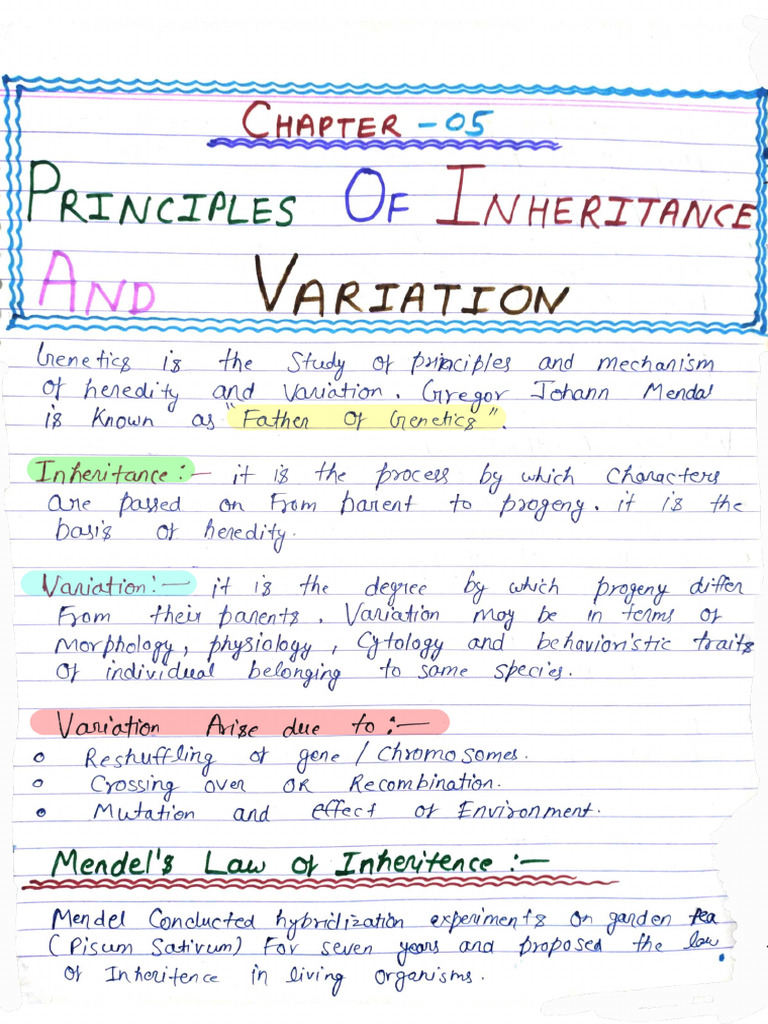 CHAPTER -05
PRINCIPLES OF INHERITANCE
AND VARIATION
Genetics is the Study of principles and mechanism
of heredity and Variation. Gregor Johann Mendal
is Known as "Father Of Genetics".
Inheritance:- it is the process by which Characters
are passed on From parent to progeny. it is the
basis of heredity.
Variation:- it is the degree by which progeny differ
From their parents. Variation may be in terms of
Morphology, physiology, Cytology and behavioristic traits
Of individual belonging to same species.
Variation Arise due to:-
Reshuffling of gene / Chromosomes.
Crossing over OR Recombination.
Mutation and effect of Environment.
Mendel's Law of Inheritence:-
Mendel Conducted hybridization experiments on garden Pea
(Pisum Sativum) For seven years and proposed the law
of Inheritence in living organisms.